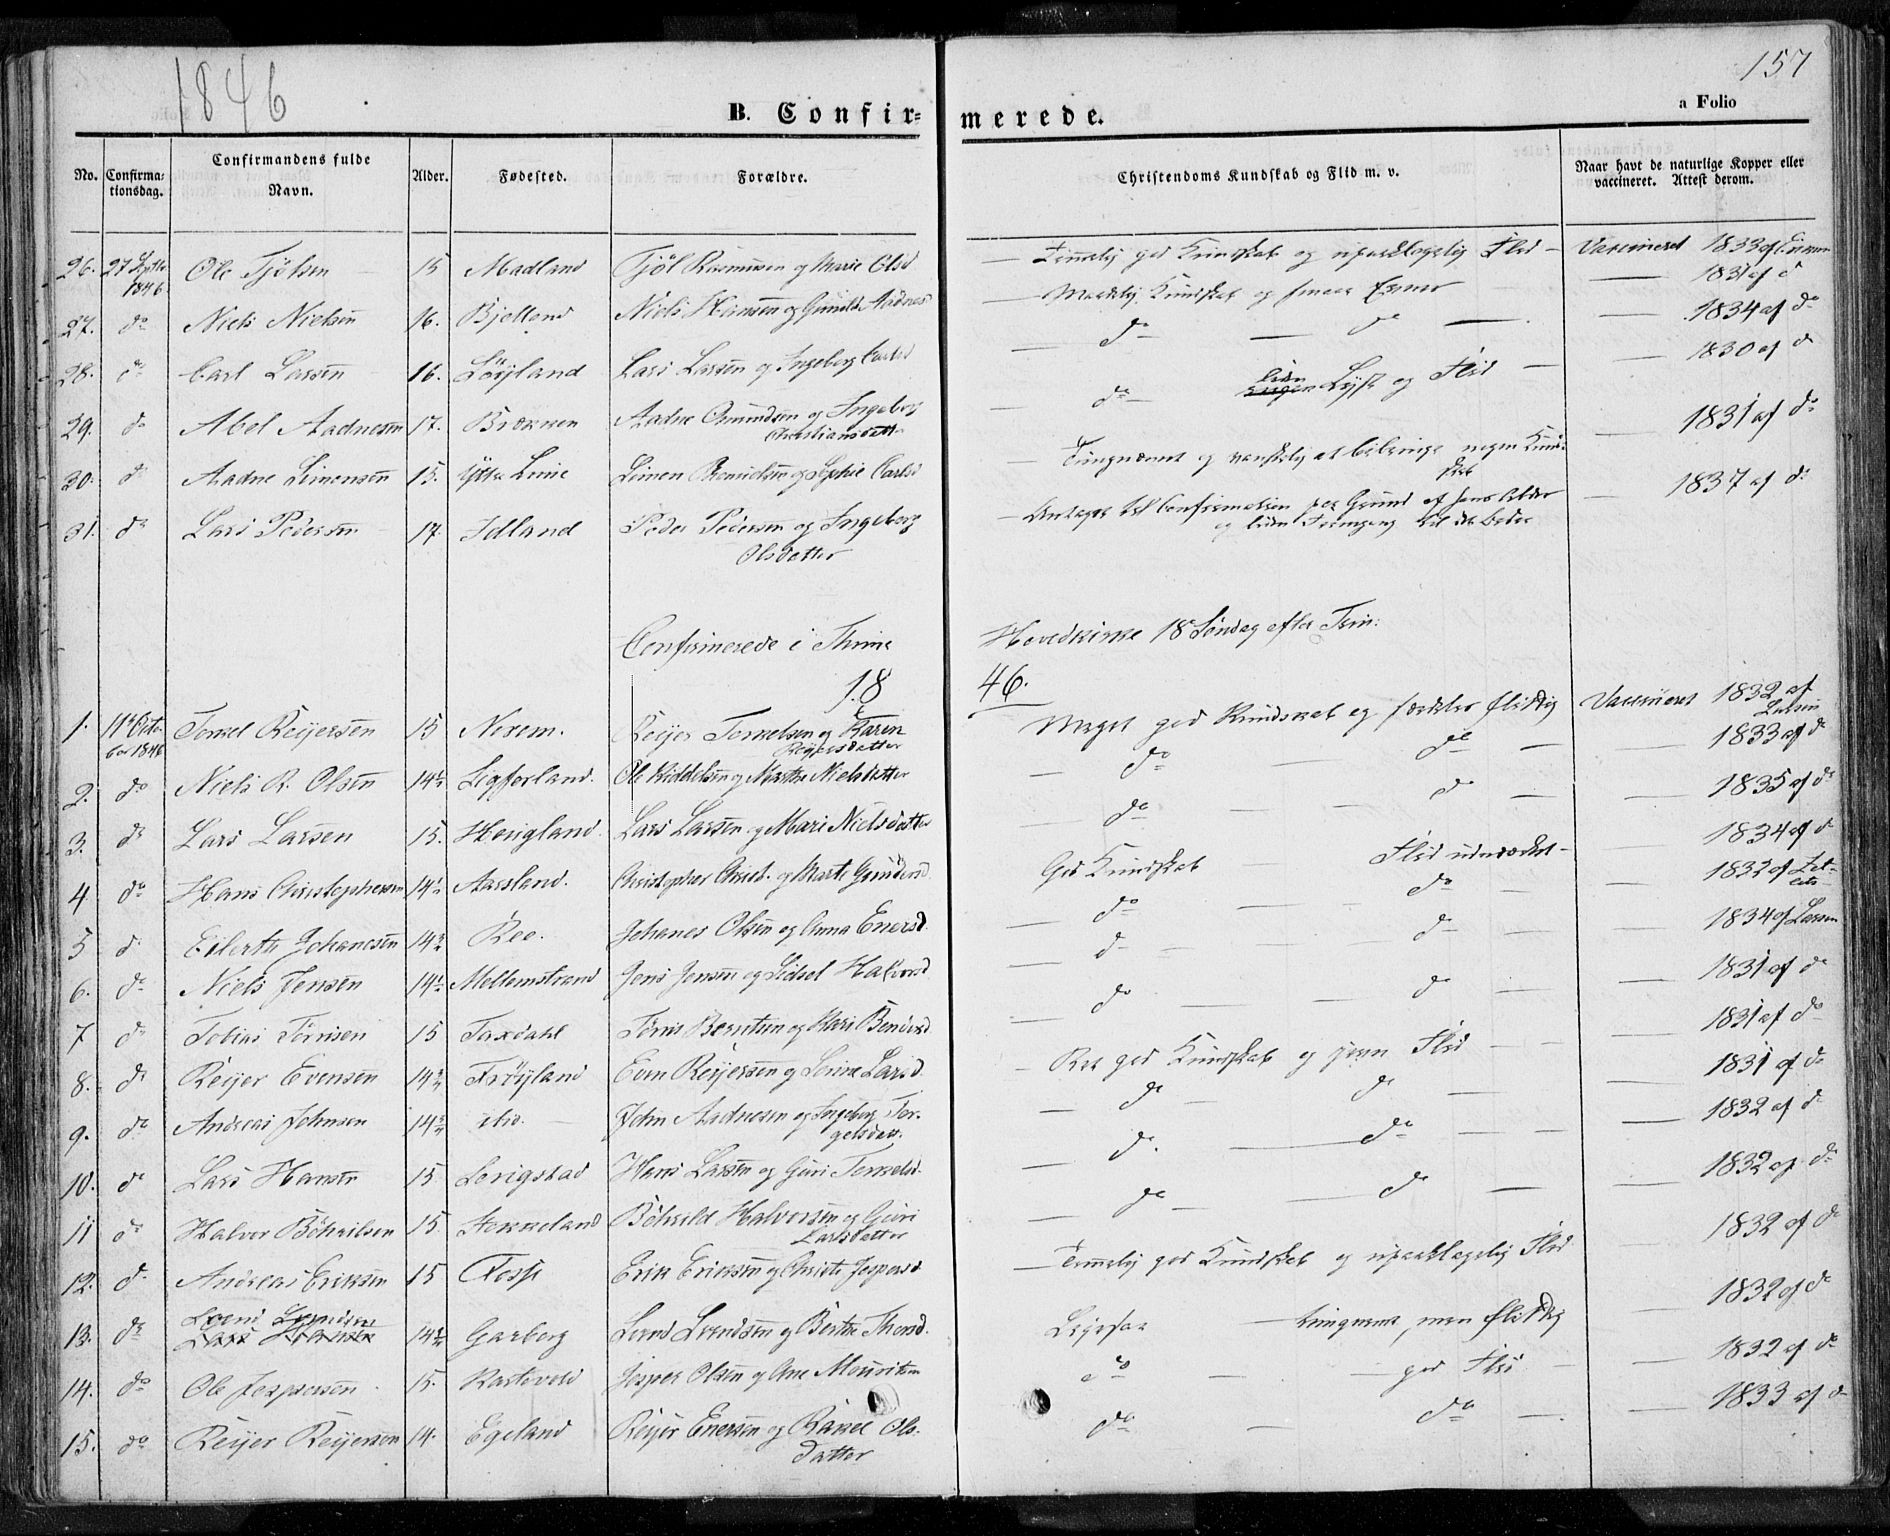 1846
157
B. Confir-merede.
a Folio
No.
Confirma-
tionsdag.
Confirmandens fulde
Navn.
Alder.
Fødested.
Forældre.
Christendoms Kundskab og Flid m. v.
Naar havt de naturlige Kopper eller
vaccineret. Attest derom.
26. 27 Septbr 1846 Ole Tjölsen 15 Madland Tjöl Rasmussen og Marie Olsd Temmelig god Kundskab og upaaklagelig Flid Vaccineret 1833 af
27. do Niels Nielsen 16. Bjelland Niels Hansen og Gunild Aadnes Maadelig Kundskab og smaa Evner 1831 af d
28. do Carl Larsen 16. Löyland Lars Larsen og Ingeborg Carlsd do do 1834 af do
29. do Abel Aadnesen 17. Brekken Aadne Omundsen og Ingeborg
Christiansdatter do liden Lyst og Flid 1830 af do
30. d Aadne Simonsen 15. Ytre Lime Simon og Sophie Carlsd Tungnemet og vanskelig at bibringe nogen Kund-
skab 1831 af do
31. do Lars Pedersen 17. Idland Peder Pedersen og Ingeborg
Olsdatter Antaget til Confirmation paa Grund af hans Alder
og liden Fremgang til det Bedre 1837 af do
Confirmerede i Thime Hovedkirke 18 Söndag efter Trin:
18 46.
1. 11te Octo-
ber 1846 Torkel Reijersen 15 Norem. Reijer Torkelsen og Karen
Reijersdatter Meget god Kundskab og særdeles flittig Vaccineret 1832 af
Larsen
2. do Niels R. Olsen 14½ Ligforland. Ole Kiddelsen og Marthe Nielsdatter do do 1833 af do
3. do Lars Larsen 15. Hougland Lars Larsen og Mari Nielsdatter do do 1835 af do
4 do Hans Christophersen 14½ Aarsland. Christopher Christ. og Marte God Kundskab Flid udmærket 1834 af do
5 d Eilerth Johanesen 14 Ree. Johanes Olsen og Anna Enersd. do do 1832 af
6. do Niels Jensen 14½ Mellemstrand Jens Jensen og Sidsel Halvorsd do do 1834 af Larsen
7 do Tobias Törrisen 15 Taxdahl Törris Berntsen og Kari do do 1831 af do
8. do Reijer Evensen 14 Fröyland Even Reijersen og Serine Larsd Ret god Kundskab og jevn Flid 1831 af do
9. do Andreas Johnsen 14 ibid. John Aadnesen og Ingeborg Tor-
gelsdatt. do do 1831 af do
10. do Lars Hansen 15 Serigstad Hans Larsen og Guri Torkelsd. do do 1832 af do
11 do Halvor Böhrilsen 15. Stokkeland Böhrild Halvorsen og Guri
Larsdatter do do 1832 af do
12. do Andreas Eriksen 15 Fosse Erik Eriksen og Christi Jespersd. Temmelig god Kundskab og upaaklagelig Flid 1832 af do
13. do Svend Svendsen 14 Garborg Svend Svendsen og Berthe Thorsd. Ligesaa tungnemt, men flittig 1832 af do
14. do Ole Jespersen 15. Kartevold Jesper Olsen og Ane Mouritsen do god Flid 1832 af do
15. do Reijer Reijersen 14. Egeland Reijer Enersen og Rakel Ols-
datter do do 1833 af do